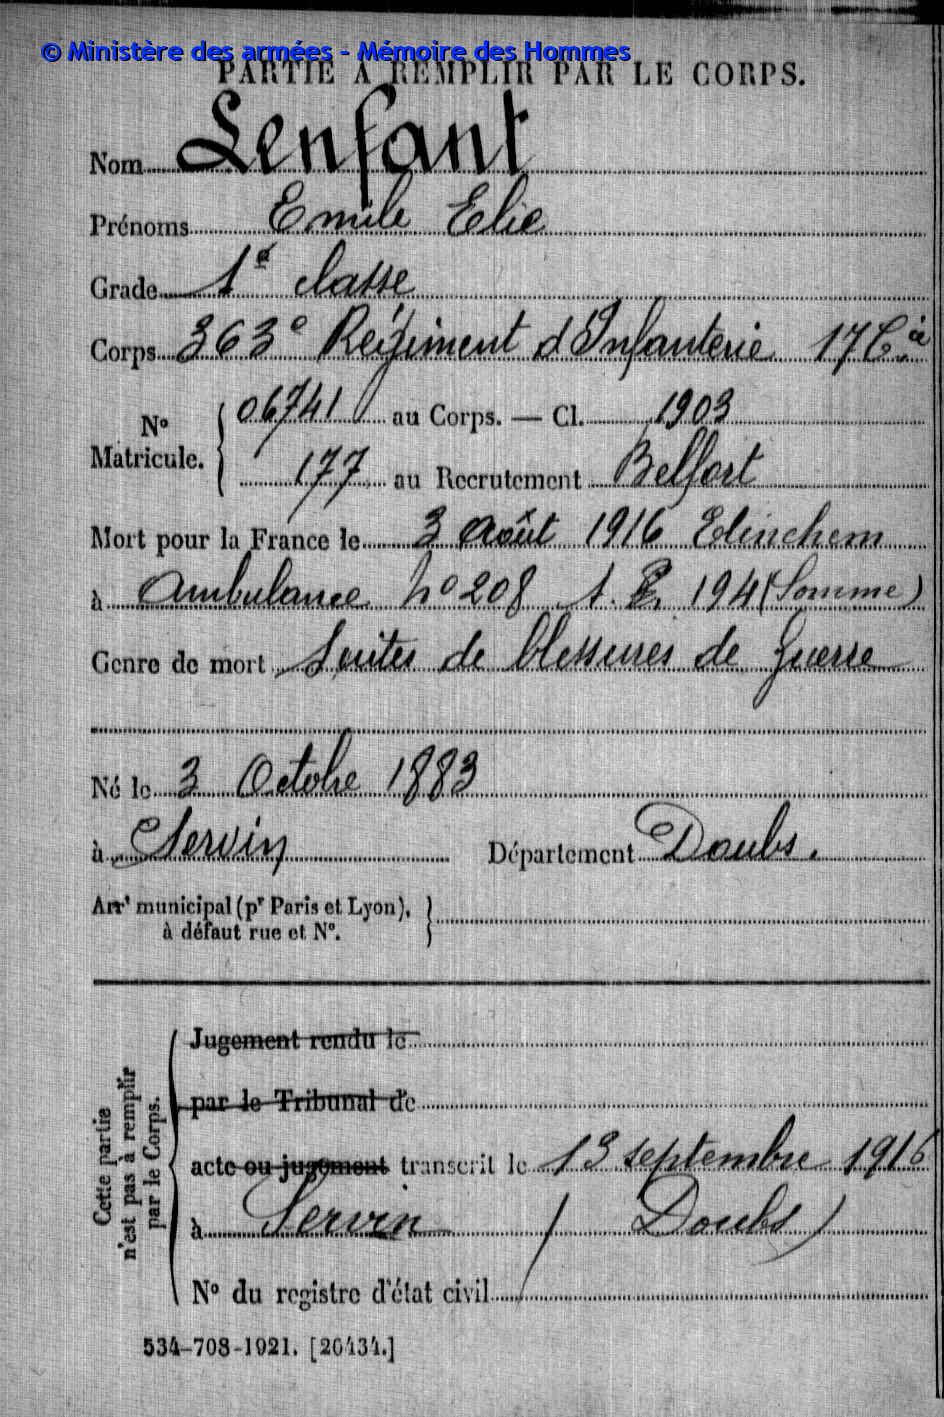 © Ministère des armées - Mémoire des Hommes
PARTIE À REMPLIR PAR LE CORPS.
Nom Lenfant
Prénoms Emile Elie
Grade 1e classe
Corps 363e Régiment d'Infanterie 17 Cie
No Matricule. { 06741 au Corps. — Cl. 1903
177 au Recrutement Belfort
Mort pour la France le 3 Août 1916 Etinehem
à Ambulance no 208 S. P. 194 (Somme)
Genre de mort Suites de blessures de Guerre
Né le 3 Octobre 1883
à Servin Département Doubs.
Arrt municipal (pr Paris et Lyon),
à défaut rue et No.
Cette partie
n'est pas à remplir
par le Corps.
Jugement rendu le
par le Tribunal de
acte ou jugement transcrit le 13 septembre 1916
à Servin (Doubs)
No du registre d'état civil
534-708-1921. [26434.]